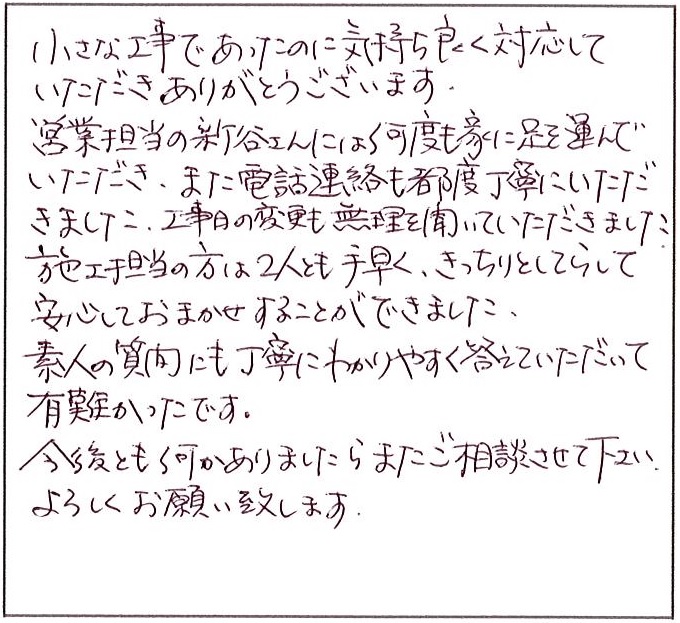 小さな工事であったのに気持ち良く対応して
いただきありがとうございます.
営業担当の新谷さんには何度も家に足を運んで
いただき、また電話連絡も都度丁寧にいただ
きました。工事日の変更も無理を聞いていただきました。
施工担当の方は2人とも手早く、きっちりとしてらして
安心しておまかせすることができました、
素人の質問にも丁寧にわかりやすく答えていただいて
有難かったです。
今後とも何かありましたらまたご相談させて下さい.
よろしくお願い致します.